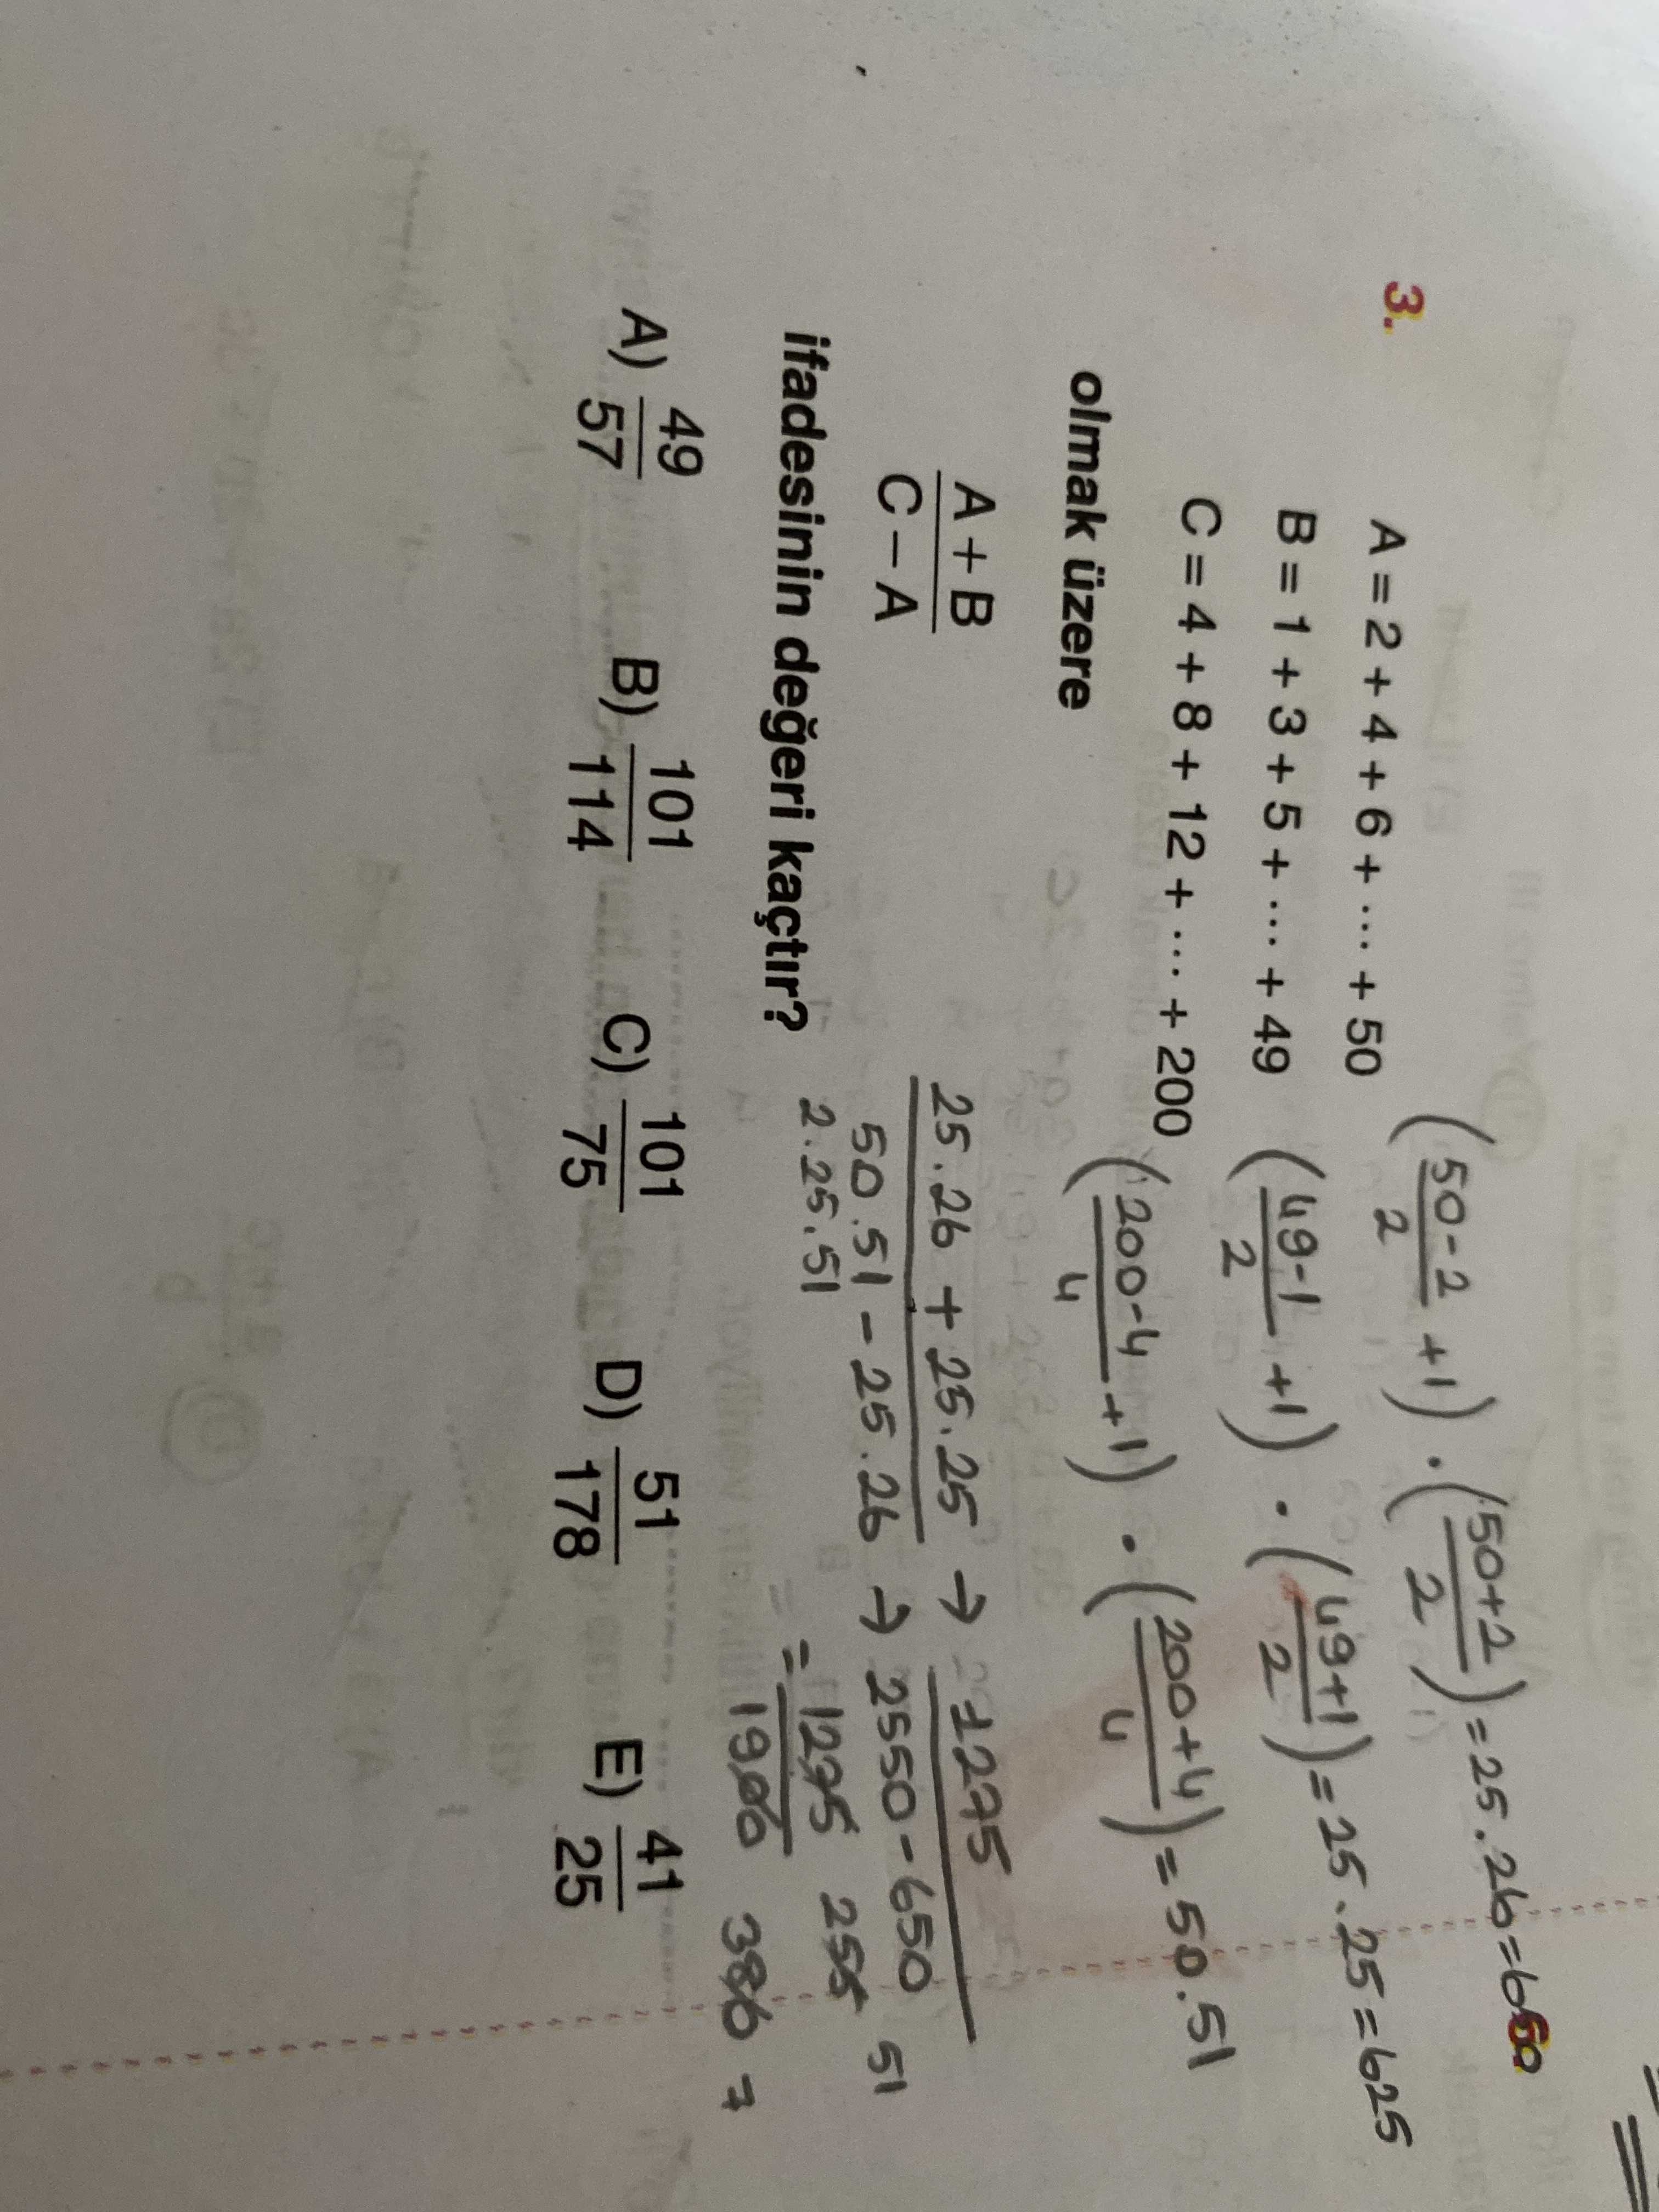 3.
A = 2 + 4 + 6 + ... + 50 (50-2/2 +1) . (50+2/2) = 25.26 = 650
B = 1 + 3 + 5 + ... + 49 (49-1/2 +1) . (49+1/2) = 25.25 = 625
C = 4 + 8 + 12 + ... + 200 (200-4/4 +1) . (200+4/4) = 50.51
olmak üzere
A + B / C – A
25.26 + 25.25 → 1275
50.51 - 25.26 → 2550-650
2.25.51
= 1275 255 51
1900 380
ifadesinin değeri kaçtır?
A) 49/57 B) 101/114 C) 101/75 D) 51/178 E) 41/25